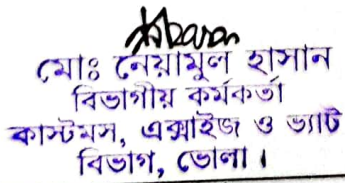 মোঃ নেয়ামুল হাসান
বিভাগীয় কর্মকর্তা
কাস্টমস, এক্সাইজ ও ভ্যাট
বিভাগ, ভোলা।